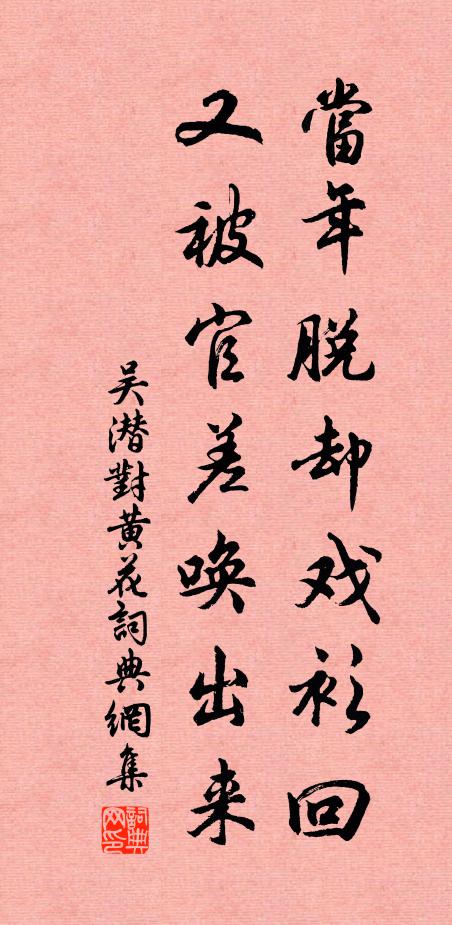 當年脱却戏衫回
又被官差唤出来
吴潜對黄花詞典網集
詞典网印